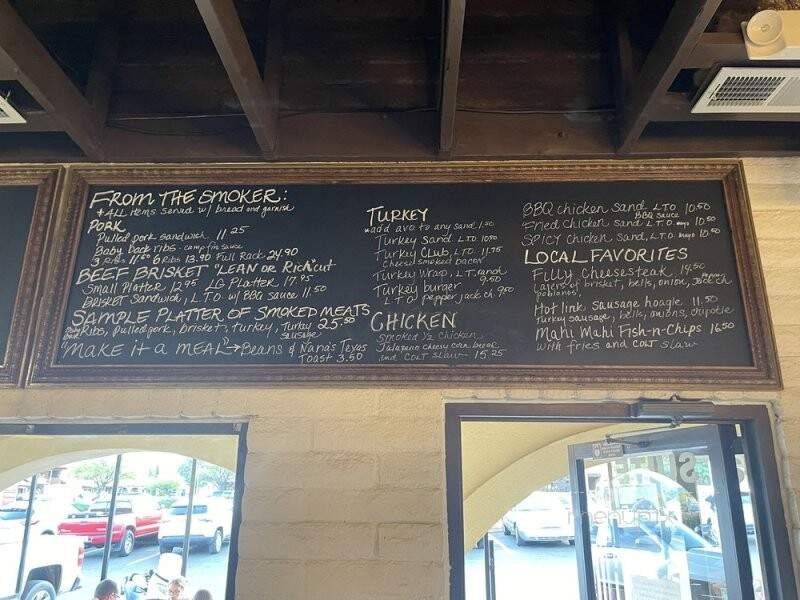 FROM THE SMOKER:
*ALL items served w/ bread and garnish
PORK
Pulled pork sandwich 11.25
Baby back ribs - campfire sauce
3 Ribs 11.60 6 Ribs 13.90 Full Rack 24.90
BEEF BRISKET "LEAN OR Rich" cut
Small Platter 12.95 LG Platter 17.95
BRISKET Sandwich, L.T.O w/ BBQ sauce 11.50
SAMPLE PLATTER OF SMOKED MEATS
Baby Back Ribs, Pulled pork, brisket, turkey, Turkey sausage 25.50
"MAKE IT A MEAL" → Beans & Nana's Texas
Toast 3.50
TURKEY
*add avo to any sand 1.50
Turkey Sand. L.T.O 10.50
Turkey Club, L.T.O. 11.75
Cheese, smoked bacon
Turkey Wrap, L.T. ranch
9.50
Turkey burger
L.T.O pepper jack ch. 9.00
CHICKEN
Smoked 1/2 chicken
Jalapeno cheesy corn bread
and COLT slaw - 15.25
BBQ chicken sand. L.T.O 10.50
BBQ sauce
Fried chicken sand. L.T.O. mayo 10.50
SPICY chicken sand, L.T.O. mayo 10.50
LOCAL FAVORITES
Filly Cheesesteak 14.50
Layers of brisket, bells, onion, Pepper Jack ch
poblanos,
Hot link Sausage hoagie 11.50
Turkey Sausage, bells, onions, chipotle
Mahi Mahi Fish-n-Chips 16.50
with fries and COLT slaw